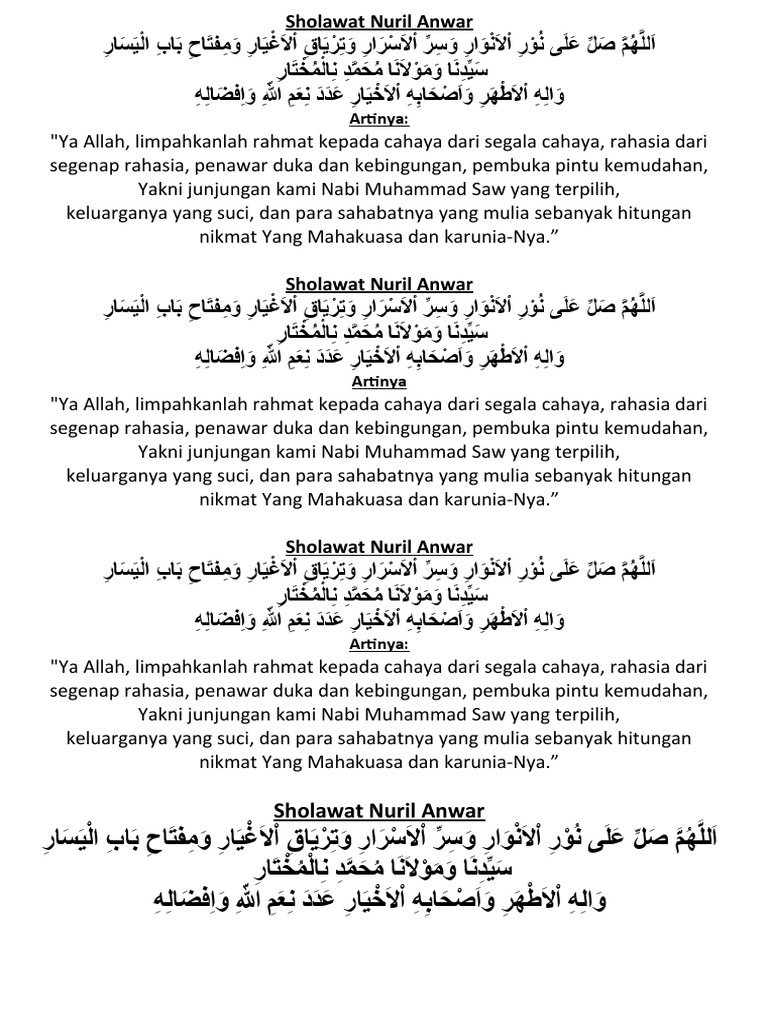 Sholawat Nuril Anwar
اَللَّهُمَّ صَلِّ عَلَى نُوْرِ اْلاَنْوَارِ وَسِرِّ اْلاَسْرَارِ وَتِرْيَاقِ اْلاَغْيَارِ وَمِفْتَاحِ بَابِ الْيَسَارِ
سَيِّدِنَا وَمَوْلاَنَا مُحَمَّدِ نِالْمُخْتَارِ
وَالِهِ اْلاَطْهَرِ وَاَصْحَابِهِ اْلاَخْيَارِ عَدَدَ نِعَمِ اللهِ وَاِفْضَالِهِ
Artinya:
"Ya Allah, limpahkanlah rahmat kepada cahaya dari segala cahaya, rahasia dari
segenap rahasia, penawar duka dan kebingungan, pembuka pintu kemudahan,
Yakni junjungan kami Nabi Muhammad Saw yang terpilih,
keluarganya yang suci, dan para sahabatnya yang mulia sebanyak hitungan
nikmat Yang Mahakuasa dan karunia-Nya.”
Sholawat Nuril Anwar
اَللَّهُمَّ صَلِّ عَلَى نُوْرِ اْلاَنْوَارِ وَسِرِّ اْلاَسْرَارِ وَتِرْيَاقِ اْلاَغْيَارِ وَمِفْتَاحِ بَابِ الْيَسَارِ
سَيِّدِنَا وَمَوْلاَنَا مُحَمَّدِ نِالْمُخْتَارِ
وَالِهِ اْلاَطْهَرِ وَاَصْحَابِهِ اْلاَخْيَارِ عَدَدَ نِعَمِ اللهِ وَاِفْضَالِهِ
Artinya
"Ya Allah, limpahkanlah rahmat kepada cahaya dari segala cahaya, rahasia dari
segenap rahasia, penawar duka dan kebingungan, pembuka pintu kemudahan,
Yakni junjungan kami Nabi Muhammad Saw yang terpilih,
keluarganya yang suci, dan para sahabatnya yang mulia sebanyak hitungan
nikmat Yang Mahakuasa dan karunia-Nya.”
Sholawat Nuril Anwar
اَللَّهُمَّ صَلِّ عَلَى نُوْرِ اْلاَنْوَارِ وَسِرِّ اْلاَسْرَارِ وَتِرْيَاقِ اْلاَغْيَارِ وَمِفْتَاحِ بَابِ الْيَسَارِ
سَيِّدِنَا وَمَوْلاَنَا مُحَمَّدِ نِالْمُخْتَارِ
وَالِهِ اْلاَطْهَرِ وَاَصْحَابِهِ اْلاَخْيَارِ عَدَدَ نِعَمِ اللهِ وَاِفْضَالِهِ
Artinya:
"Ya Allah, limpahkanlah rahmat kepada cahaya dari segala cahaya, rahasia dari
segenap rahasia, penawar duka dan kebingungan, pembuka pintu kemudahan,
Yakni junjungan kami Nabi Muhammad Saw yang terpilih,
keluarganya yang suci, dan para sahabatnya yang mulia sebanyak hitungan
nikmat Yang Mahakuasa dan karunia-Nya.”
Sholawat Nuril Anwar
اَللَّهُمَّ صَلِّ عَلَى نُوْرِ اْلاَنْوَارِ وَسِرِّ اْلاَسْرَارِ وَتِرْيَاقِ اْلاَغْيَارِ وَمِفْتَاحِ بَابِ الْيَسَارِ
سَيِّدِنَا وَمَوْلاَنَا مُحَمَّدِ نِالْمُخْتَارِ
وَالِهِ اْلاَطْهَرِ وَاَصْحَابِهِ اْلاَخْيَارِ عَدَدَ نِعَمِ اللهِ وَاِفْضَالِهِ